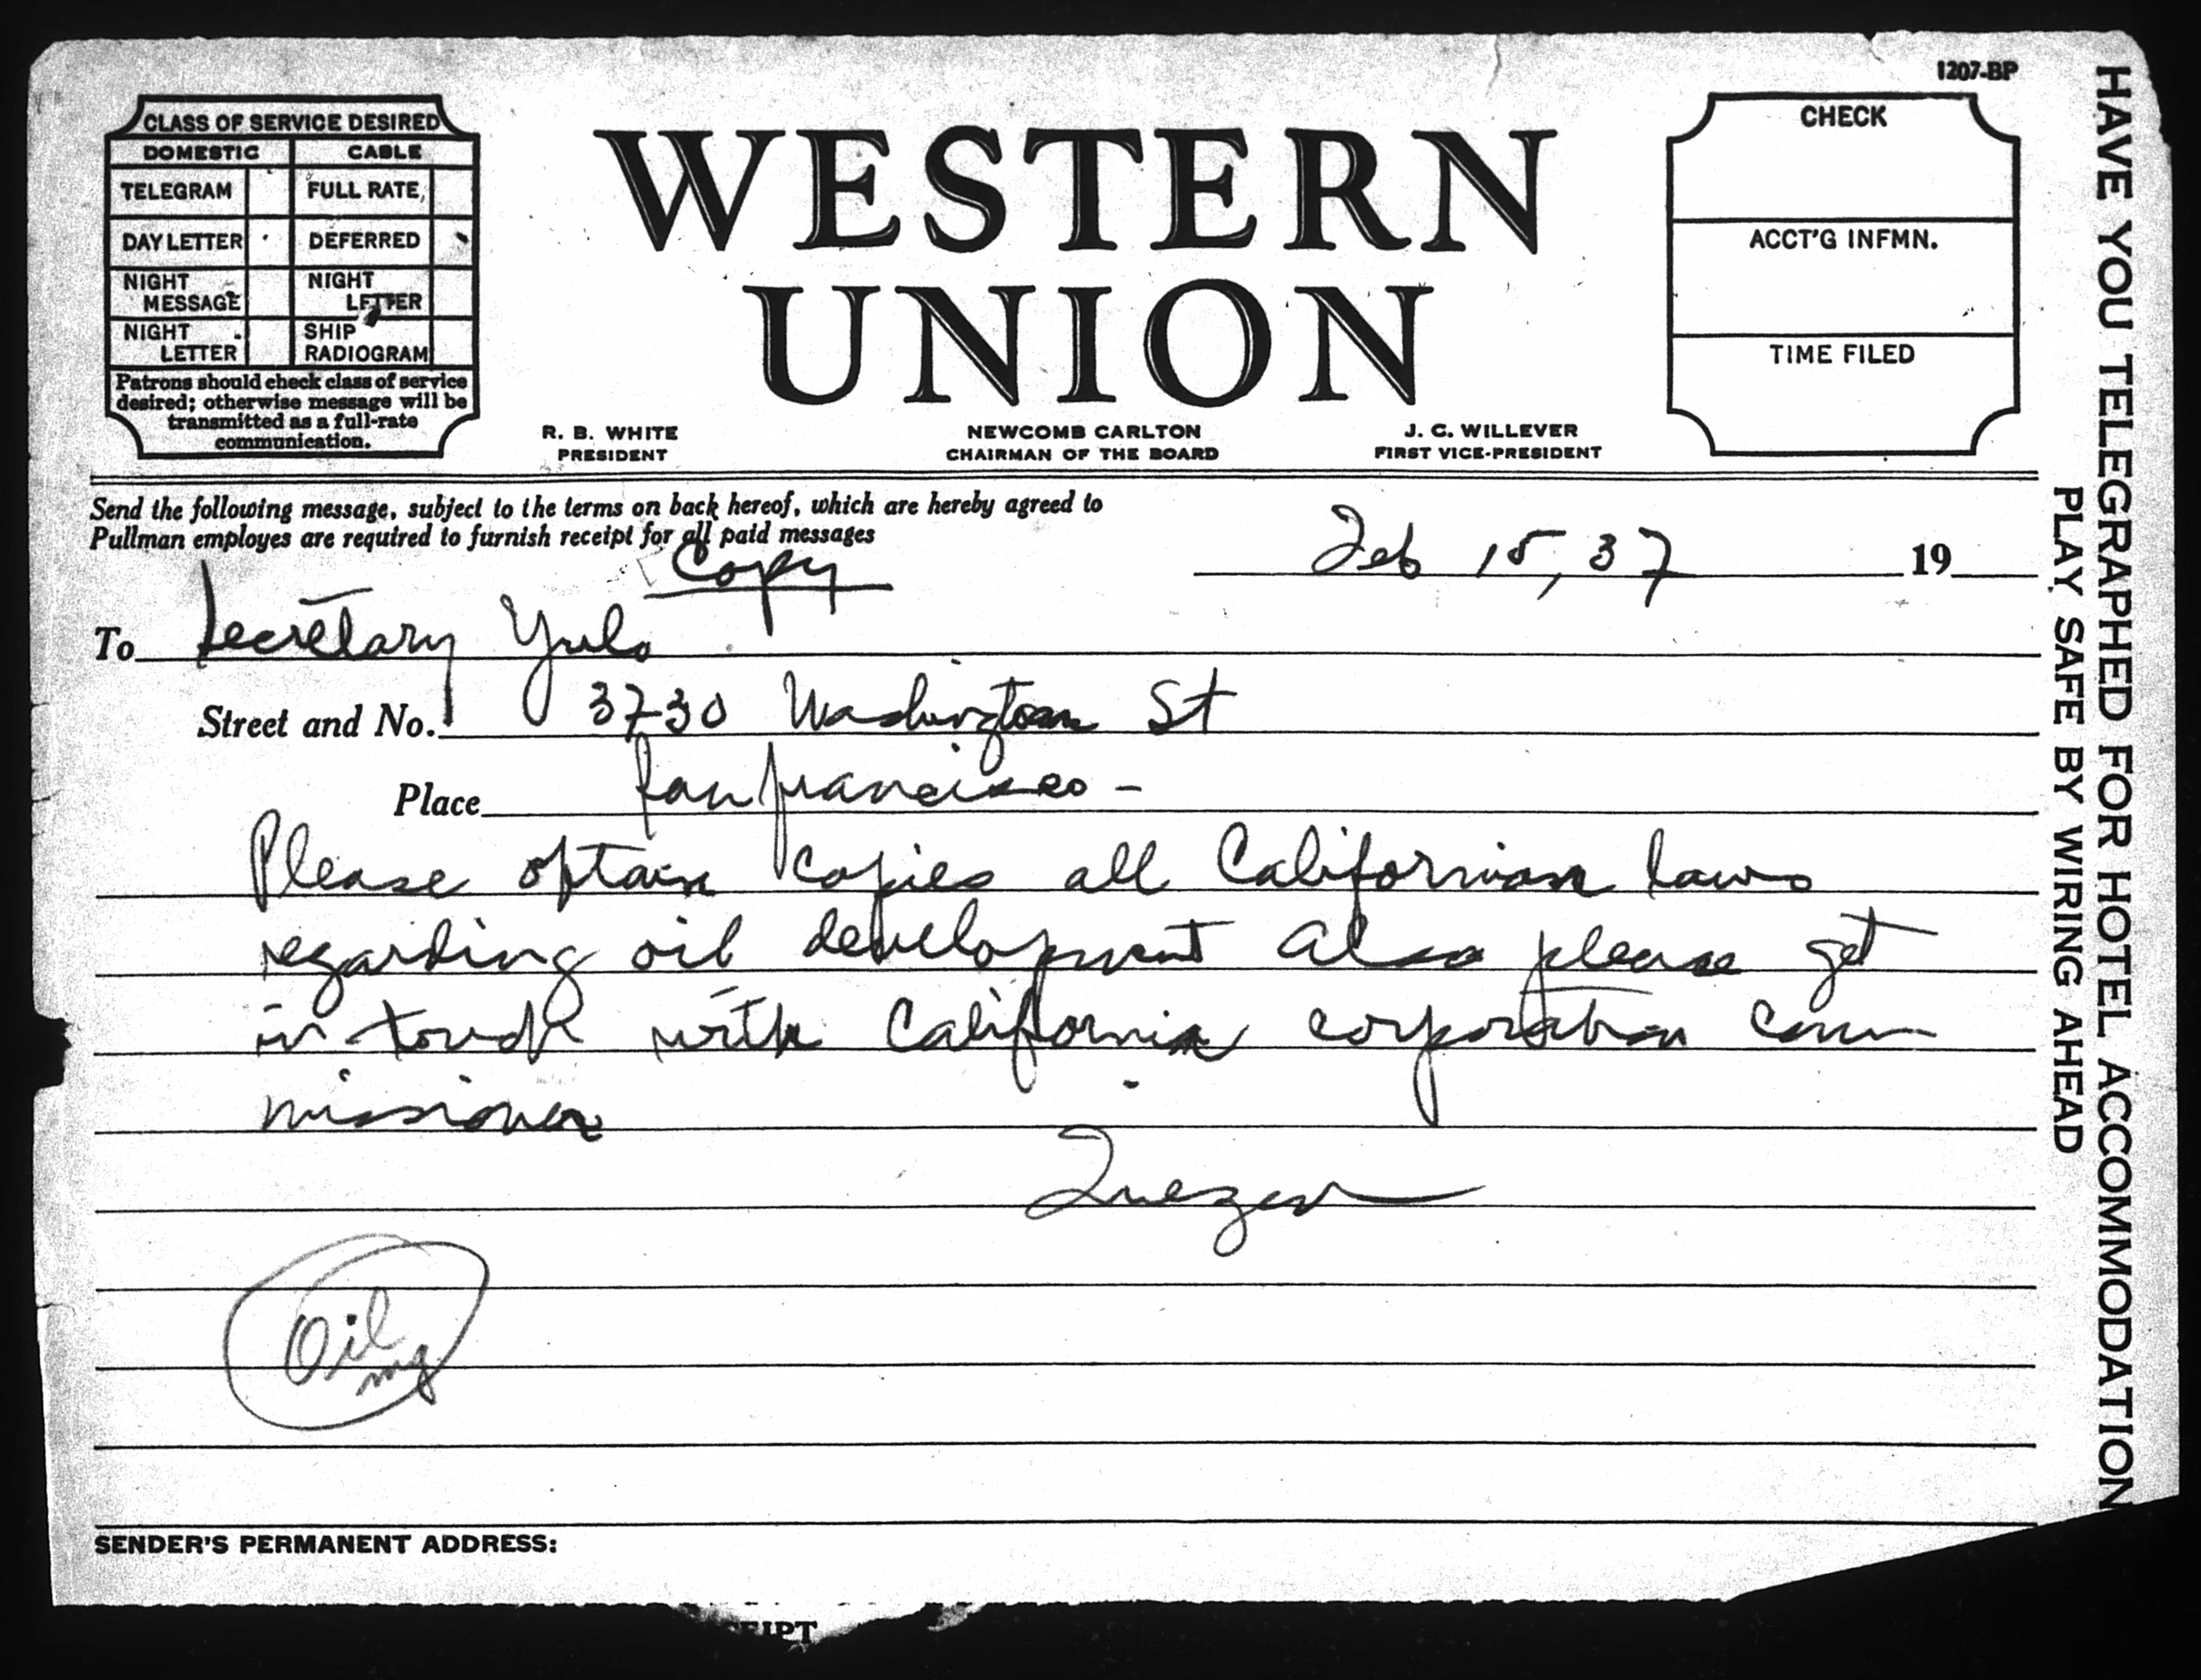 1207-BP
CLASS OF SERVICE DESIRED
DOMESTIC CABLE
TELEGRAM FULL RATE
DAY LETTER DEFERRED
NIGHT MESSAGE NIGHT LETTER
NIGHT LETTER SHIP RADIOGRAM
Patrons should check class of service
desired; otherwise message will be
transmitted as a full-rate
communication.
WESTERN
UNION
R. B. WHITE
PRESIDENT
NEWCOMB CARLTON
CHAIRMAN OF THE BOARD
J. C. WILLEVER
FIRST VICE-PRESIDENT
CHECK
ACCT'G INFMN.
TIME FILED
Send the following message, subject to the terms on back hereof, which are hereby agreed to
Pullman employes are required to furnish receipt for all paid messages
Copy
Feb 15, 37 19
To Secretary Yulo
Street and No. 3730 Washington St
Place San Francisco -
Please optain copies all Californian laws
regarding oil development also please get
in touch with California corporation com
missioner
Quezon
Oil
SENDER'S PERMANENT ADDRESS:
HAVE YOU TELEGRAPHED FOR HOTEL ACCOMMODATION
PLAY SAFE BY WIRING AHEAD